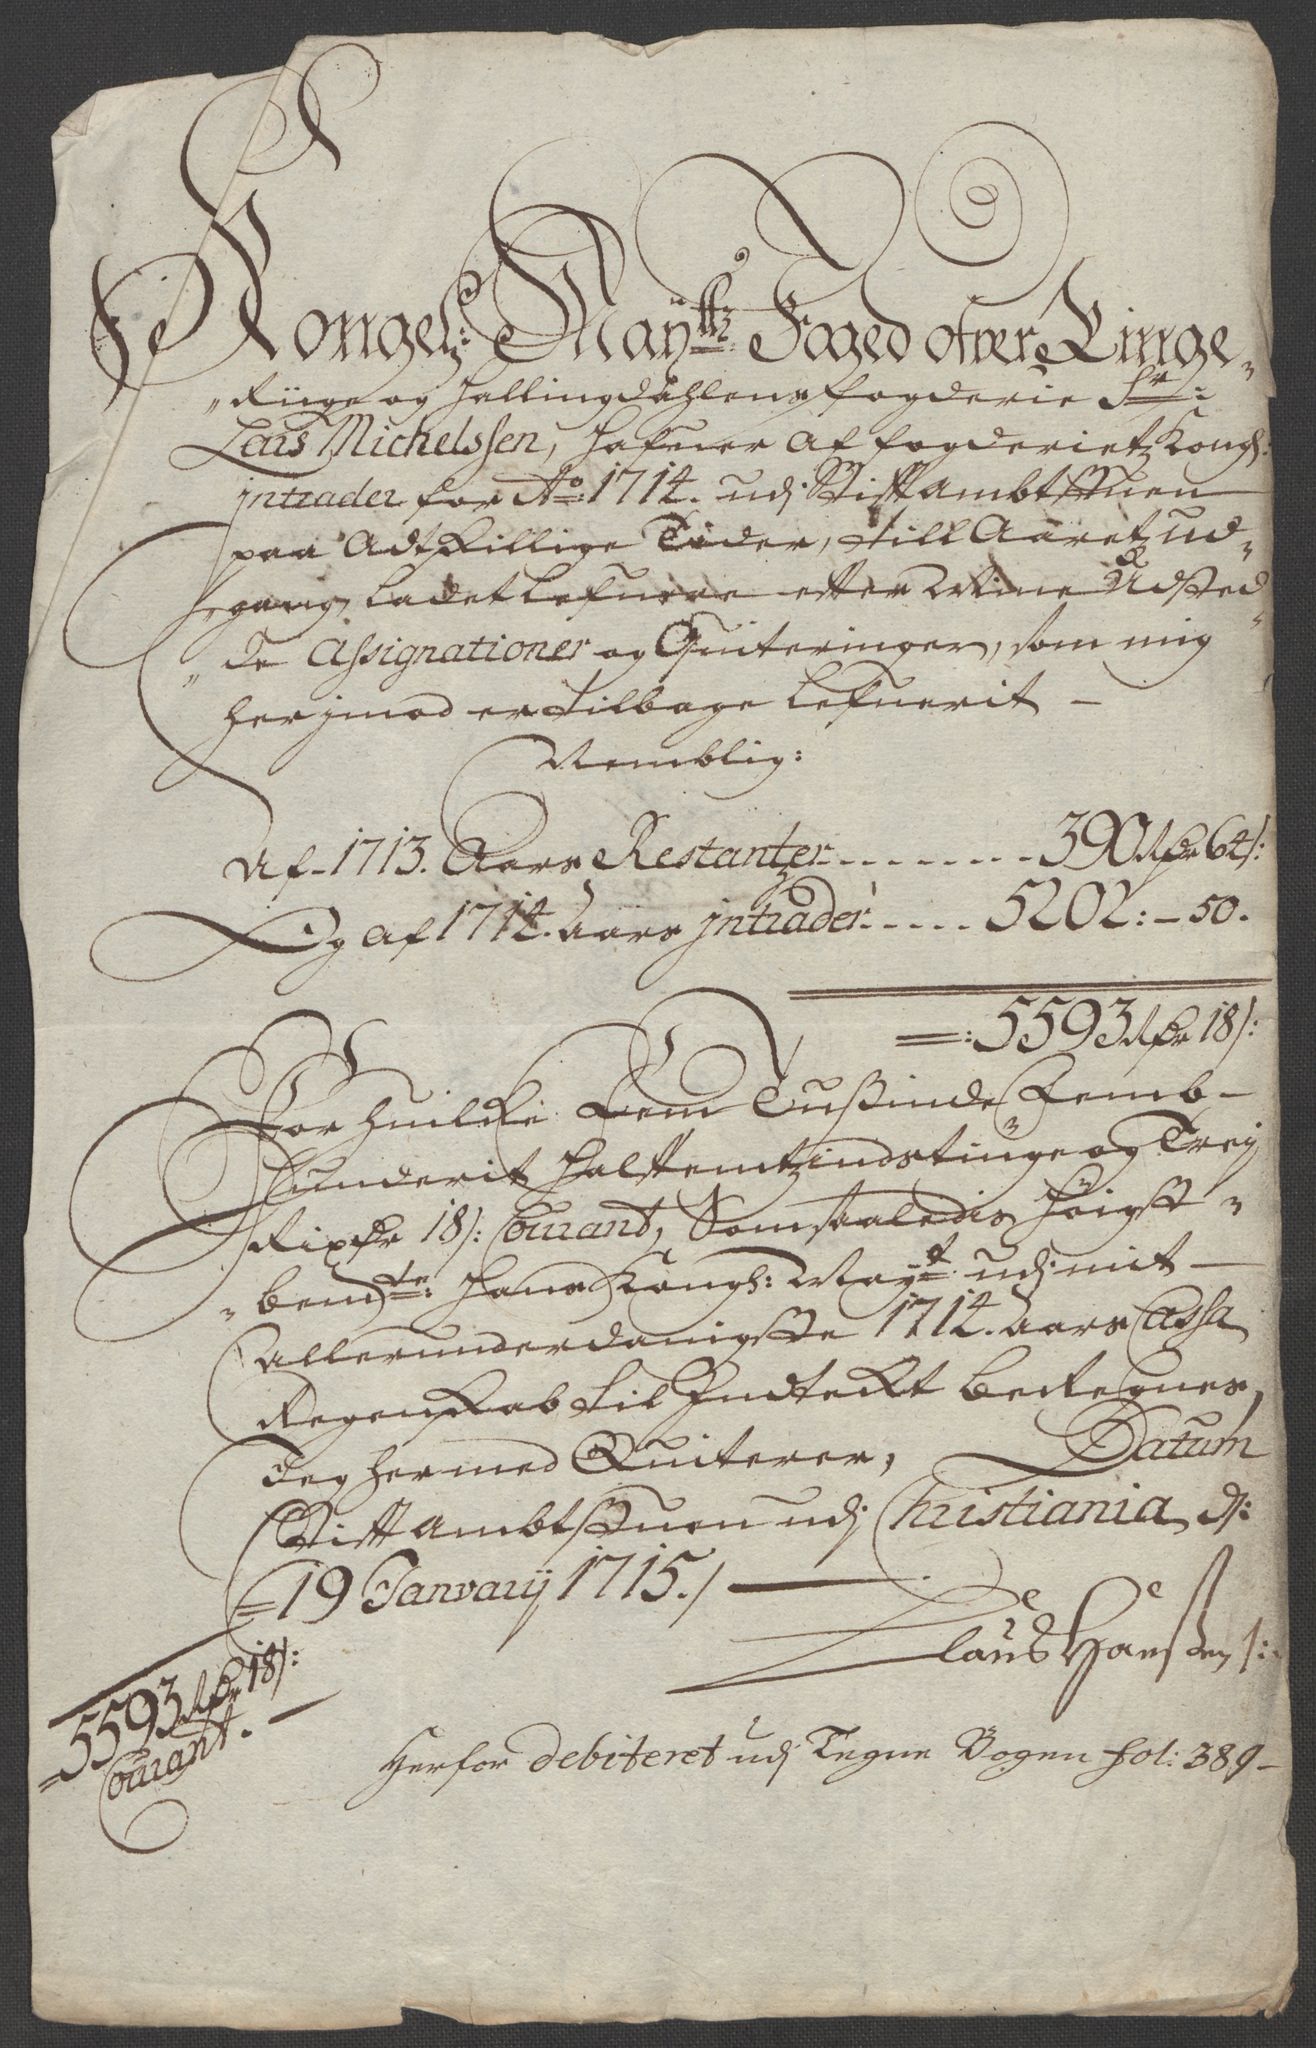 Kongel: Maytz Foged ofver Ringe-
"Riige og Hallingdahlens fogderie Sr:
Lars Michelssen, hafuer af fogderietz Kongl:
jntrader for Ao: 1714. udj Stiftambtstuen
paa Adtskillige Tider, till Aaretz ud-
"gang, ladet lefuere efter Mine Udsted-
"de Assignationer og Quiteringer, som mig
her jmod er tilbage lefuerit –
Nemblig:
Af 1713. Aars Restantzer ......... 390 Rdr 64 s:
Og af 1714. Aars jntrader ..... 5202: – 50.
=: 5593 Rdr 18 s:
For huilke Fem Tußinde Femb-
hunderit halffemtzindstiuge og Trej
Rixdr 18 s: Courant, Somsaaledis höigst-
"bemdte: Hans Kongl: Mayt: udj mit
Allerunderdanigste 1714. Aars Cassa
Regenskab til Indtekt beregnes,
Jeg hermed Quiterer, Datum
Stiftambtstuen udj Christiania d:
= 19 January 1715./
Claus Hanßen
5593 Rdr 18 s:
Courant. –
Herfor debiteret udj Tegne Bogen fol: 389 –